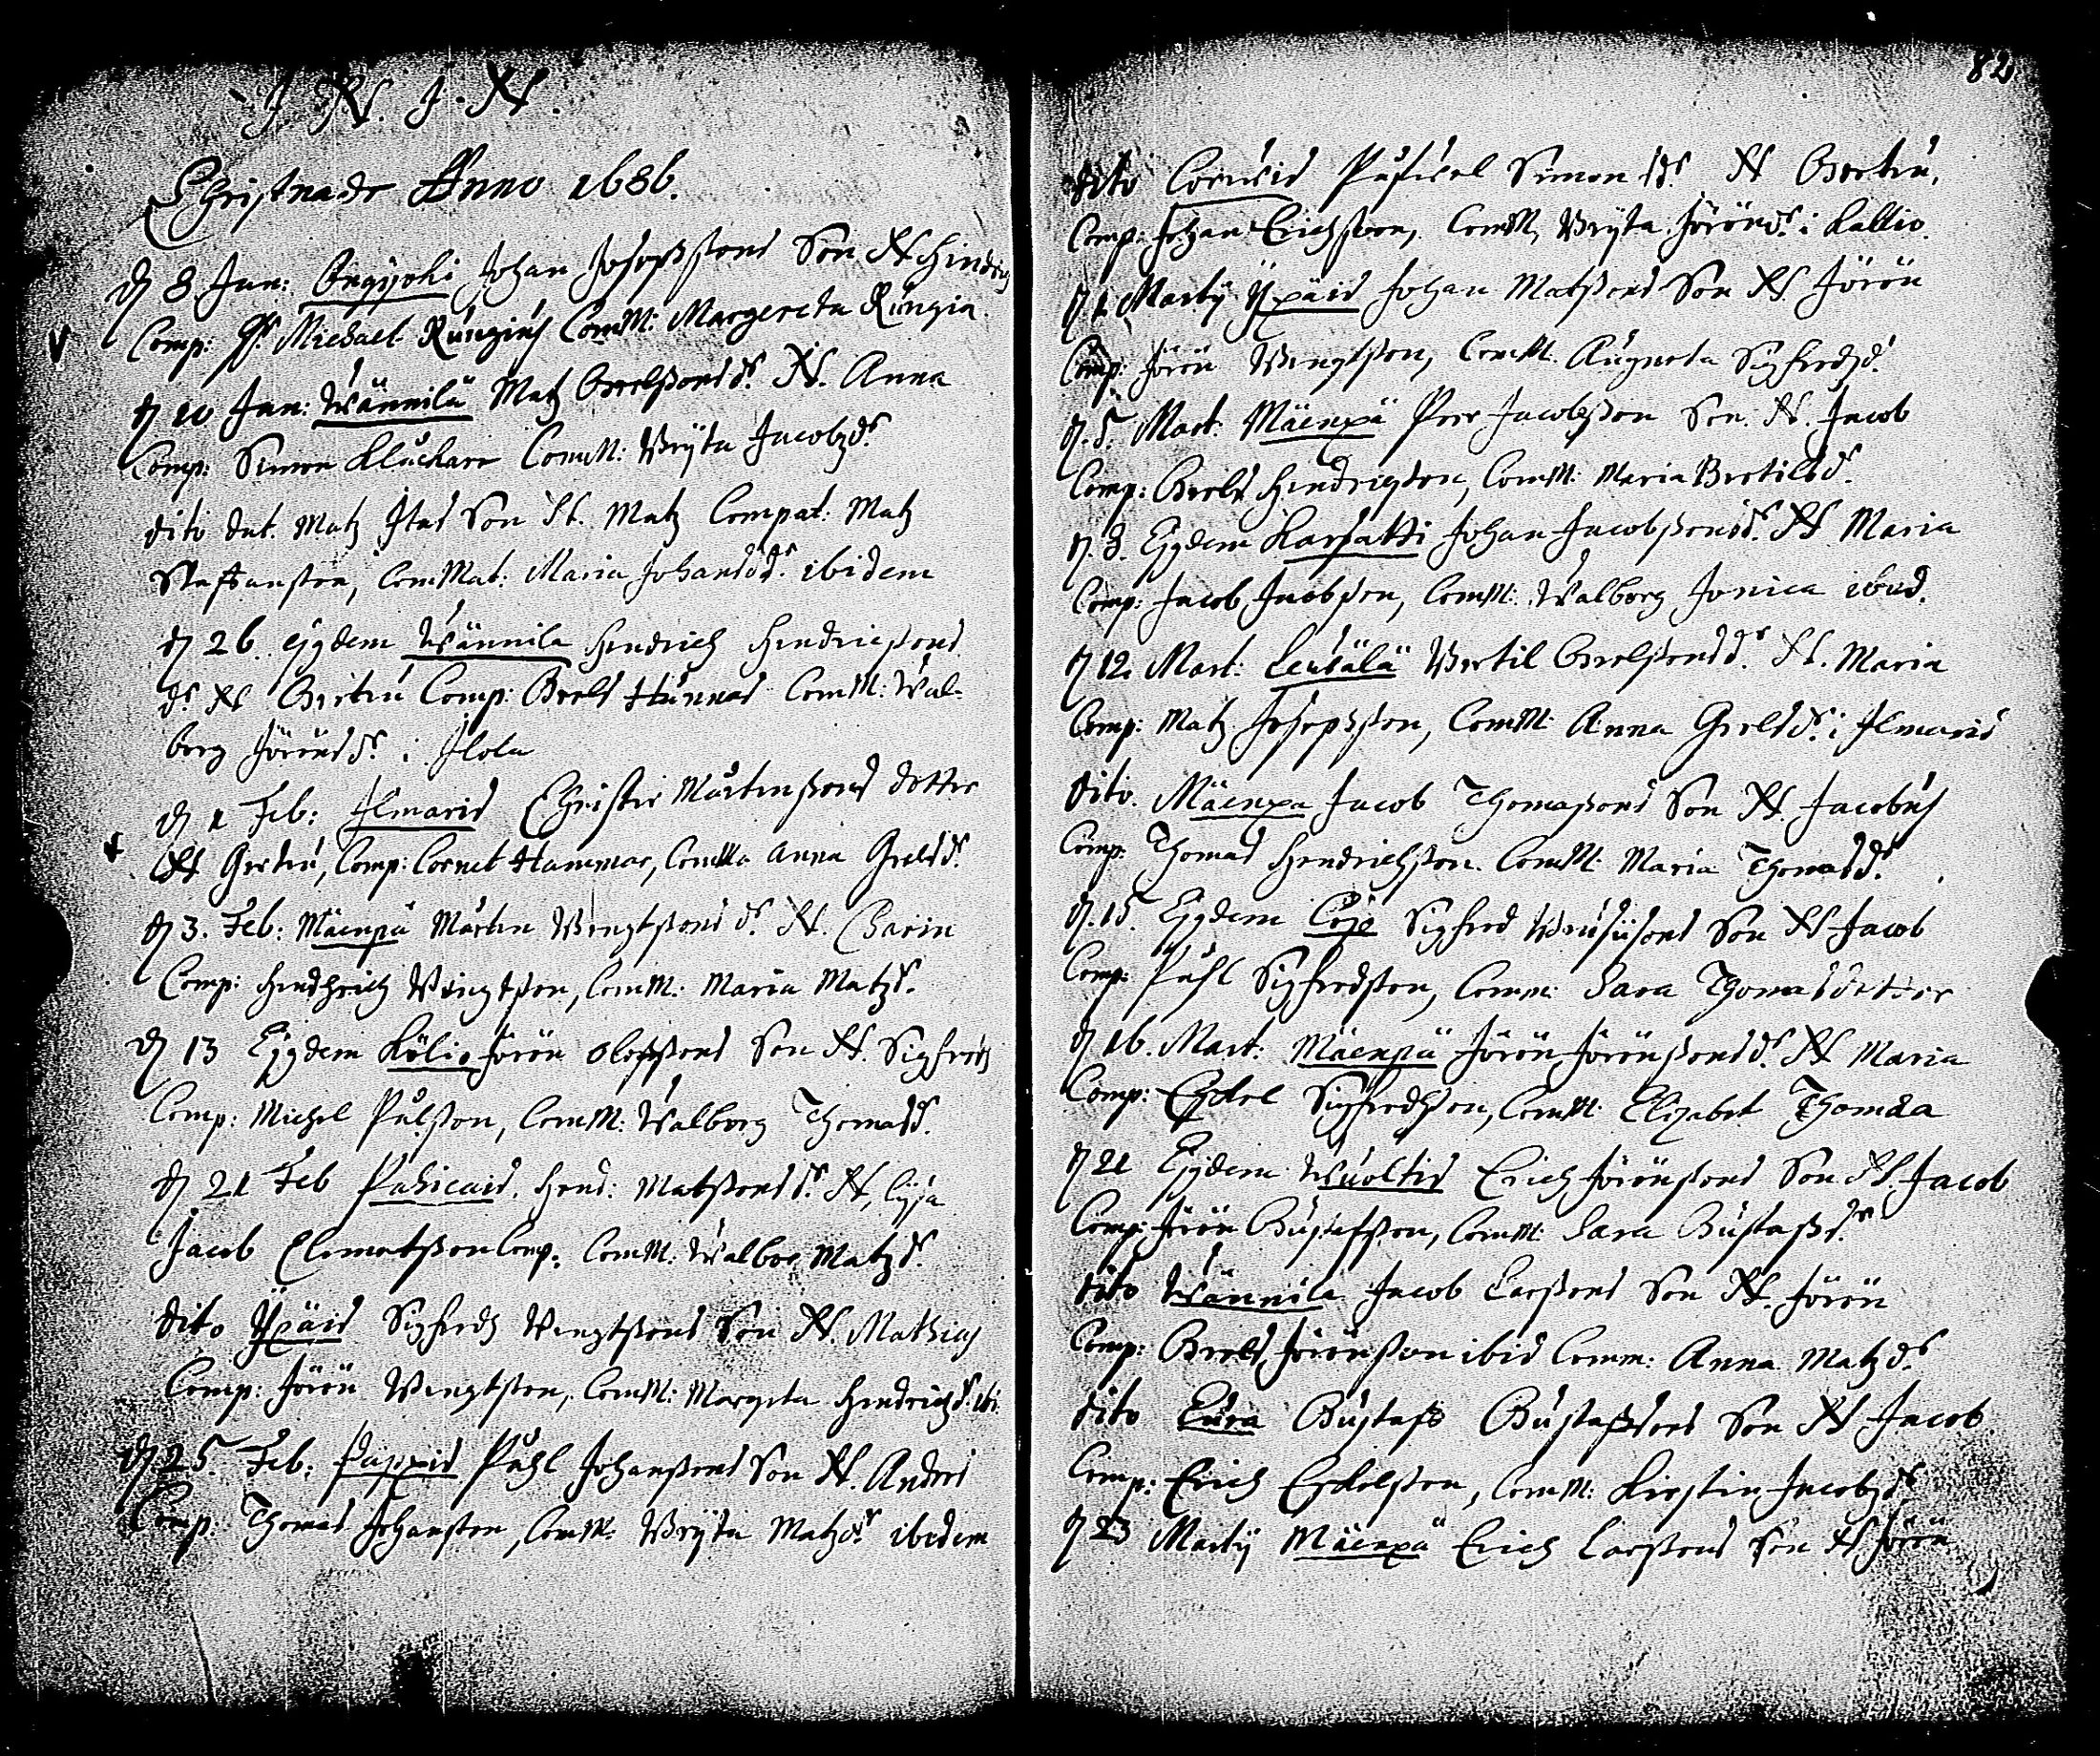 J. N. J. N.
Christnade Anno 1686.
d 8 Jan: Orgijoki Johan Josephssons Son N Hindrich
Comp: H. Michael Rungius ComM: Margereta Rungia.
d 10 Jan: Wännilä Matz Grelssons d. N. Anna
Comp: Simon Kluckare ComM: Bryta Jacobzd.
dito dat. Matz Son N. Matz Compat: Matz
Staffansson, ComMat: Maria Johansd. ibidem
d 26. ejgdem Wännila Hendrich Hendricssons
d. N Gertru Comp: Grels Hunnas ComM: Wal-
borg Jöröns d. i Ilola
d 1 Feb: Ilmaris Christer Mårtenssons dotter
N Gertru, Comp: Cornet Hammar, ComMa Anna Grelsd.
d 3. Feb: Mäenpä Mårten Bengtssons d. N. Charin
Comp: Hendhrich Bengtsson, ComM: Maria Matzd.
d 13 Ejgdem Kölio Jörön Olofssons Son N. Sigfredh
Comp: Michel Pålsson, ComM: Walborg Thomasd.
d 21 Feb Pahicais. Hend: Matssons d. N, Lijsa
Jacob Clemetsson Comp. ComM: Walbor Matzd.
dito Ypäis Sigfredh Bengtssons Son N. Mathias
Comp: Jörön Bengtsson, ComM: Margeta Hendrichzd. ibi.
d 25. Feb: Pappis Påhl Johanssons Son N. Anders
Comp: Thomas Johansson, ComM: Bryta Matzd. ibidem
82
dito Corvois Simon d. N Gertru.
Comp: Johan Erichsson, ComM, Bryta Jörönd. i Kallio.
d 1 Martij Ypäis Johan Matssons Son N. Jörön
Comp: Jörön Bengtsson, ComM. Augneta Sigfredzd.
d. 5. Mart. Mäenpä Peer Jacobsson Son. N. Jacob
Comp: Grels Hendrigson, ComM: Maria Bertilsd.
d. 8. Ejgdem Karhatti Johan Jacobssons d. N Maria
Comp: Jacob Jacobson, ComM: Walborg Jonica ibid.
d 12. Mart: Leusälä Bertil Grelssons d. N. Maria
Comp: Matz Josepsson, ComM: Anna Grelsd. i Ilmaris
dito. Mäenpä Jacob Thomassons Son N Jacobus
Comp. Thomas Hendrichsson. ComM: Maria Thomasd.
d. 15. Ejgdem Coje Sigfred Son N Jacob
Comp: Påhl Sigfredsson, Comm: Sara Thomasdotter
d 16. Mart: Mäenpä Jörön Jörönssons d. N Maria
Comp: Eskel Sigfredhson, ComM: Elizabet Thomda
d 21 Ejgdem Wuoltis Erich Jörönssons Son N. Jacob
Comp: Jörön Gustafsson, ComM: Sara Gustafsd.
dito Wännila Jacob Larssons Son N. Jörön
Comp: Grels Jörönsson ibid Comm: Anna Matzd.
dito Eura Gustafs Gustafssons Son N Jacob
Comp: Erich Eskelsson, ComM: Kirstin Jacobzd.
d 23 Martij Mäenpä Erich Larssons Son N Jörön